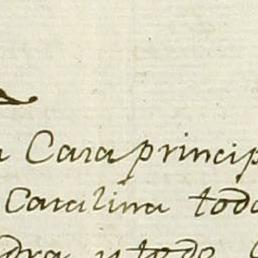 a Cara princip
Carolina todo
dra, y todo